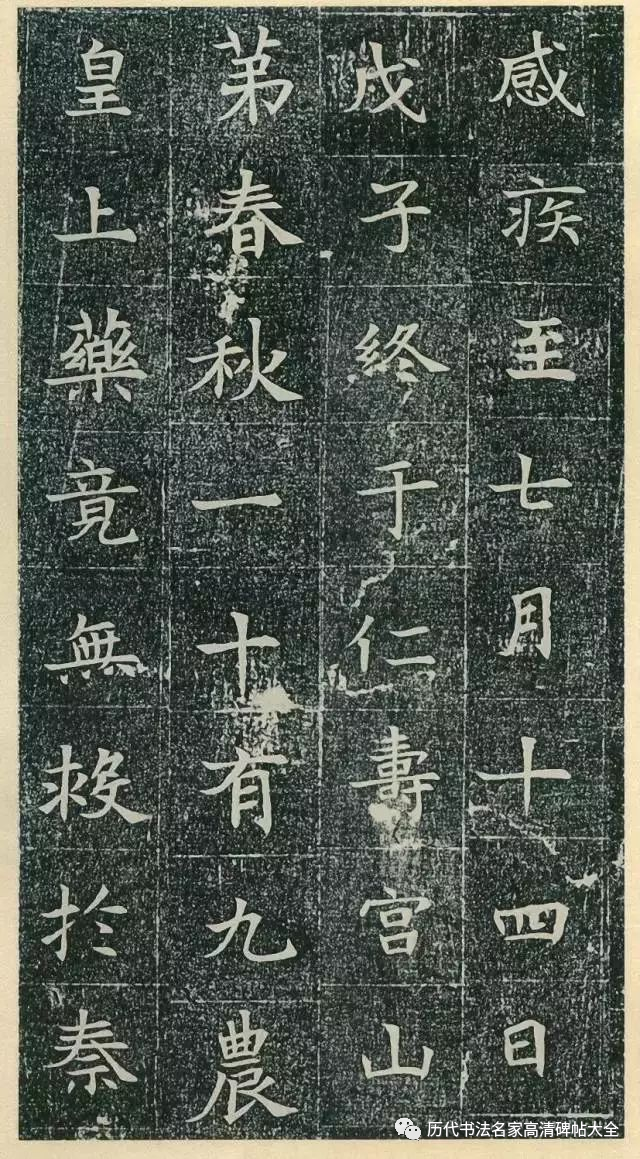 感疾至七月十四日
戊子終于仁壽宫山
苐春秋一十有九農
皇上藥竟無救於秦
历代书法名家高清碑帖大全